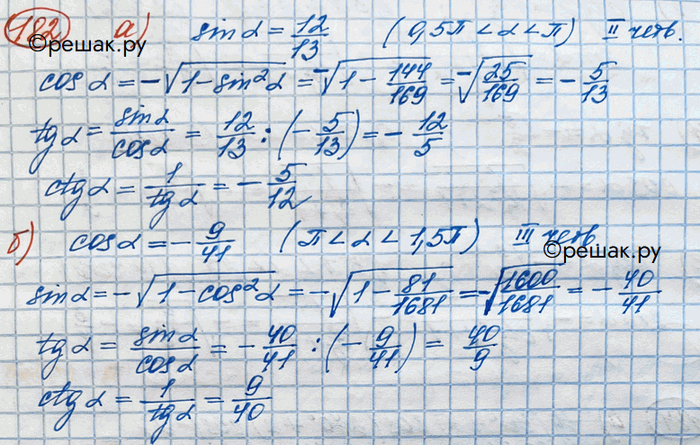 182 а) sin α = 12/13 (0,5π < α < π) II четв.
©решак.ру
cos α = -√(1 - sin²α) = -√(1 - 144/169) = -√(25/169) = -5/13
tg α = sin α/cos α = 12/13 : (-5/13) = -12/5
ctg α = 1/tg α = -5/12
б) cos α = -9/41 (π < α < 1,5π) III четв
©решак.ру
sin α = -√(1 - cos²α) = -√(1 - 81/1681) = -√(1600/1681) = -40/41
tg α = sin α/cos α = -40/41 : (-9/41) = 40/9
ctg α = 1/tg α = 9/40